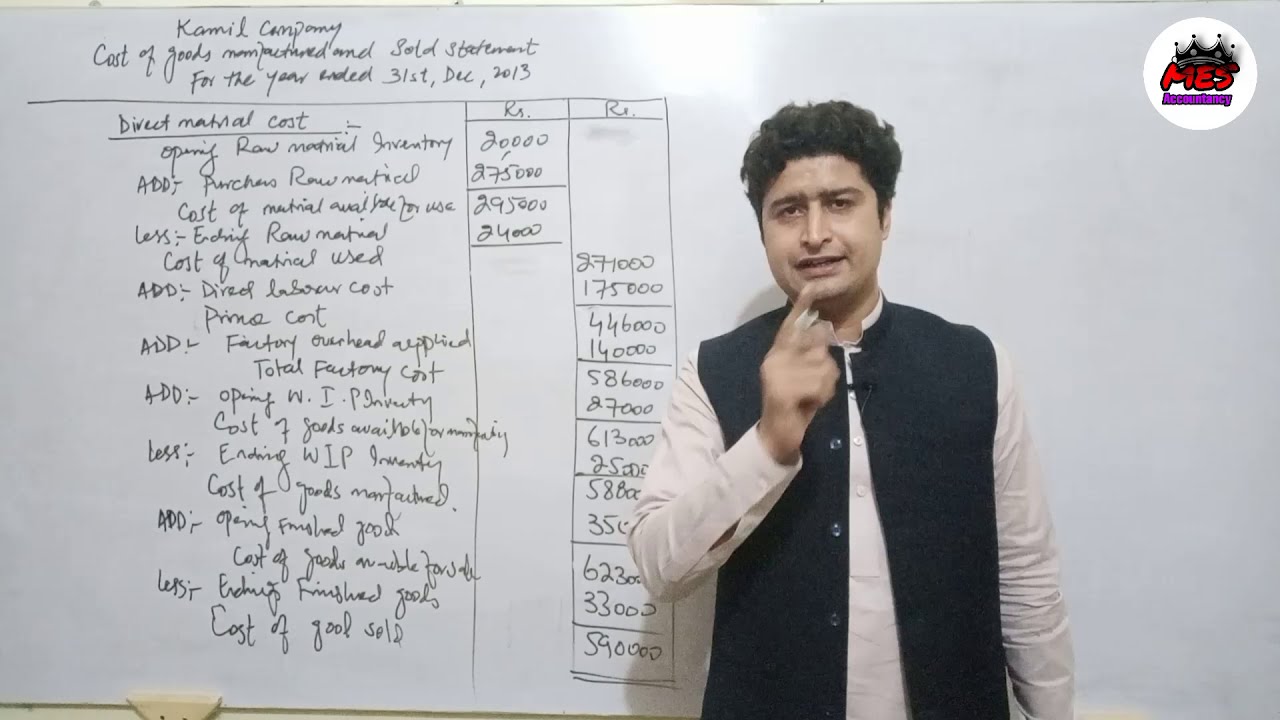 Kamil Company
Cost of goods manfactured and Sold Statement
For the year ended 31st, Dec, 2013
Rs. Rs.
Direct matrial cost :-
opening Raw matrial Inventory 20,000
ADD:- Purchases Raw matrical 275000
Cost of matrial available for use 295000
less:- Ending Raw matrial 24000
Cost of matrial used 271000
ADD:- Direct labour cost 175000
Prime cost 446000
ADD:- Factory overhead applied 140000
Total Factory cost 586000
ADD:- opening W.I.P Inventy 27000
Cost of goods available for 613000
less:- Ending WIP Inventy 2500
Cost of goods manfactured. 5880
ADD:- opening Finished goods 350
Cost of goods available for sale 6230
less:- Ending Finished goods 33000
Cost of good sold 590000
MES
Accountancy